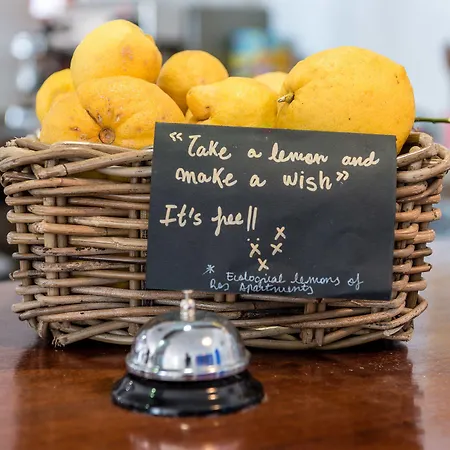 “Take a lemon and
make a wish”
It's free!!
x x
x x
* Ecological lemons of
Res Apartments